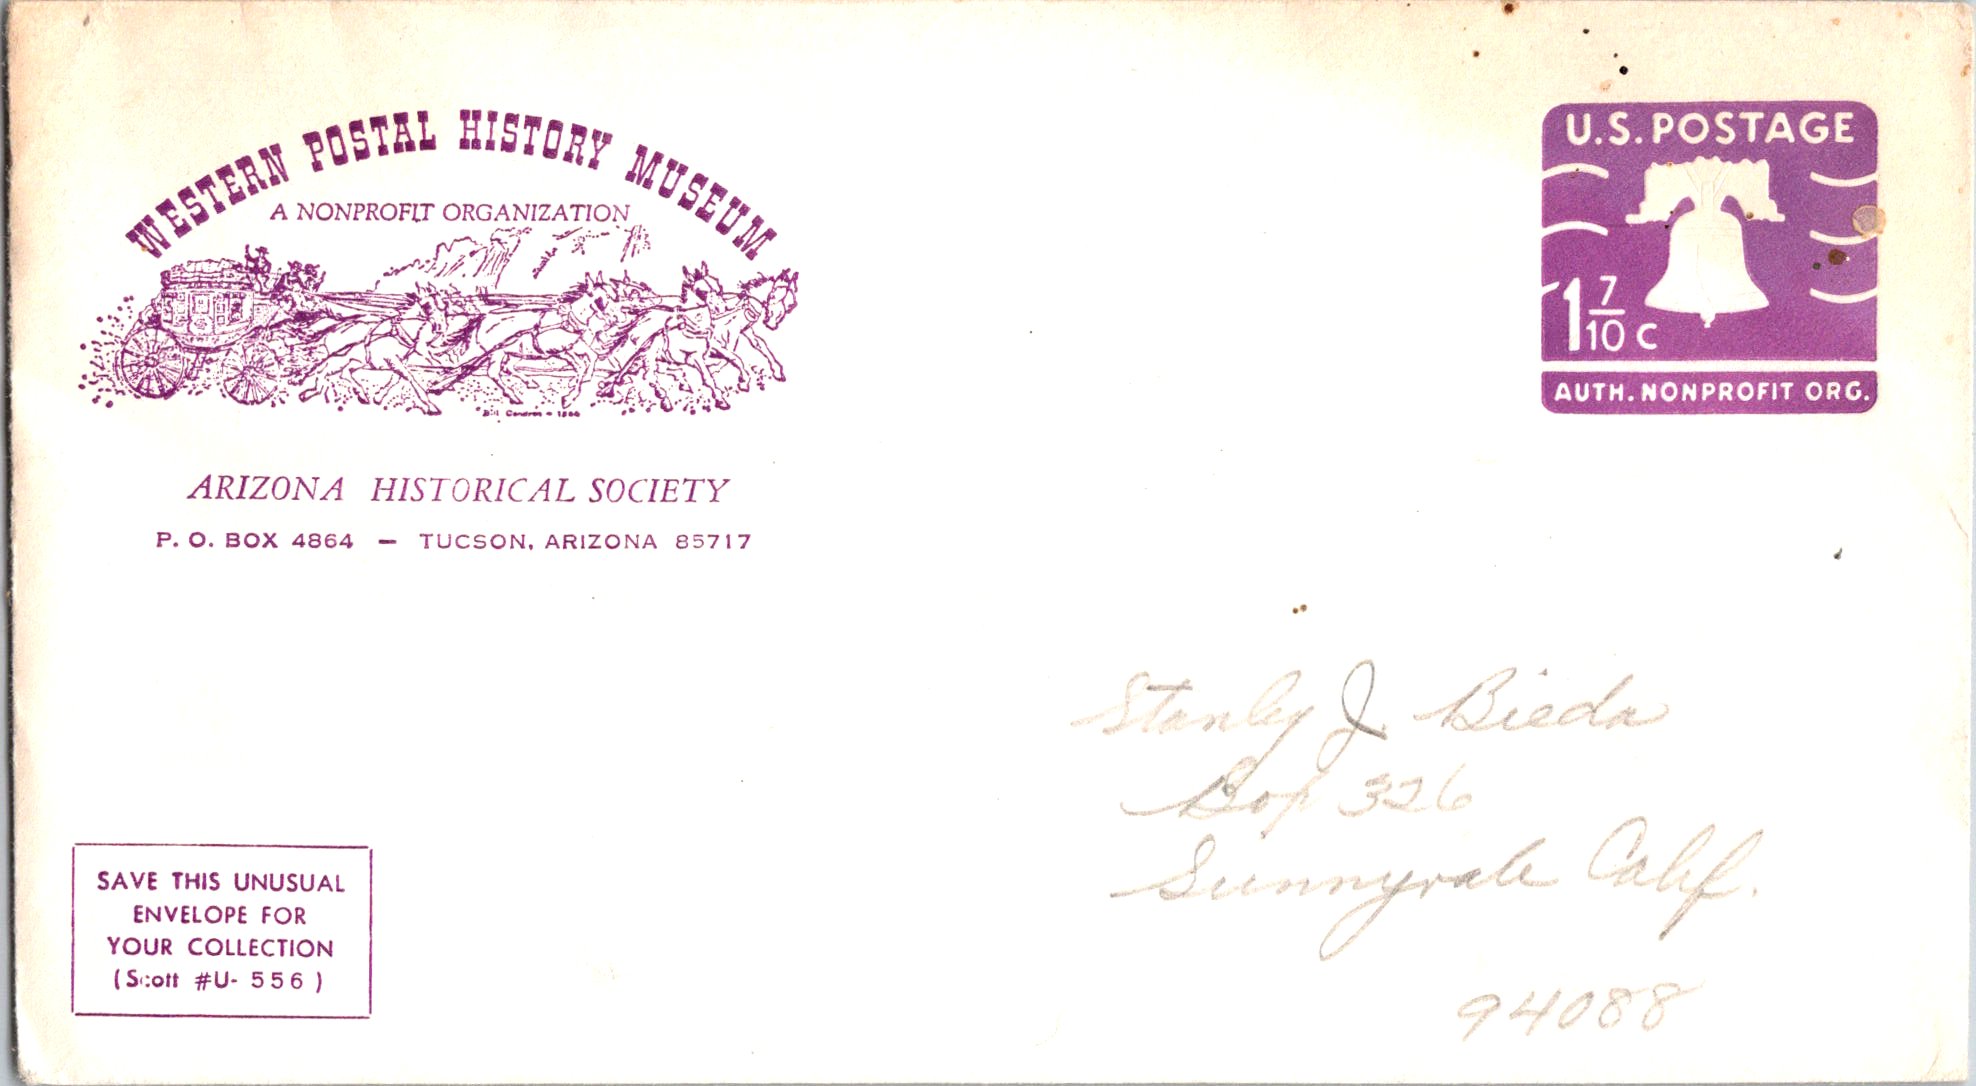 WESTERN POSTAL HISTORY MUSEUM
A NONPROFIT ORGANIZATION
ARIZONA HISTORICAL SOCIETY
P. O. BOX 4864 — TUCSON, ARIZONA 85717
U.S. POSTAGE
1 7/10 c
AUTH. NONPROFIT ORG.
Stanley J. Bieda
Box 326
Sunnyvale Calif.
94088
SAVE THIS UNUSUAL
ENVELOPE FOR
YOUR COLLECTION
(Scott #U- 556)